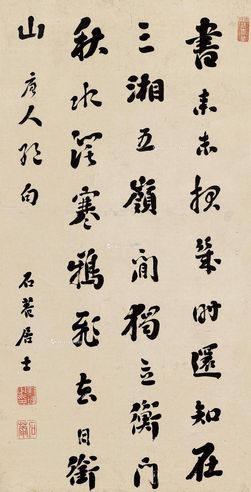 書來未報幾時還知在
三湘五嶺間獨立衡門
秋水闊寒鴉飛去日銜
山
唐人絕句
石菴居士